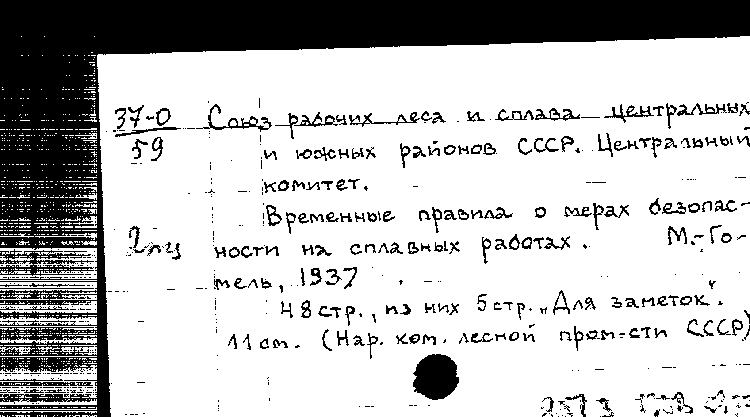 37-0 Союз рабочих леса и сплава центральных
59 и южных районов СССР. Центральный
комитет.
Временные правила о мерах безопас-
ности на сплавных работах. М.-Го-
мель, 1937.
48 стр., из них 5 стр. „Для заметок".
11 см. (Нар. ком. лесной пром-сти СССР)